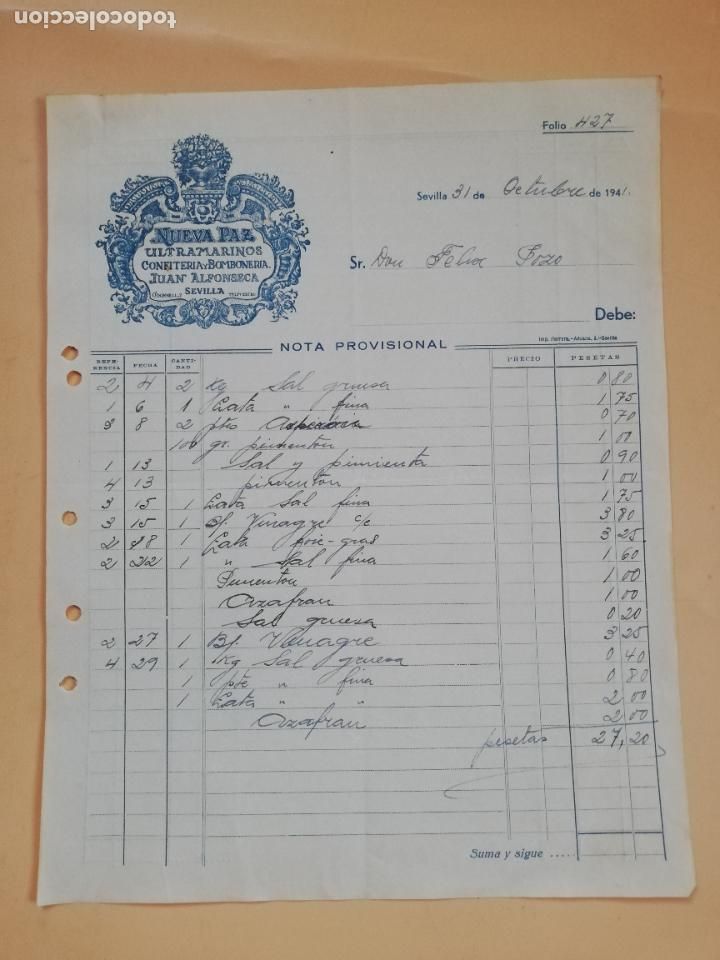 todocoleccion
Folio 427
NUEVA PAZ
ULTRAMARINOS
CONFITERIA Y BOMBONERIA
JUAN ALFONSECA
SEVILLA
Sevilla 31 de Octubre de 1941.
Sr. Don Felix Pozo
Debe:
NOTA PROVISIONAL
REFERENCIA FECHA CANTIDAD PRECIO PESETAS
2 4 2 Kg Sal gruesa 0 80
1 6 1 Lata " fina 1 75
3 8 2 pts 0 70
100 gr. pimenton 1 00
1 13 Sal y pimienta 0 90
4 13 pimentón 1 00
3 15 1 Lata Sal fina 1 75
3 15 1 Bj. Vinagre c/c 3 80
2 18 1 Lata foie-gras 3 25
2 22 1 " Sal fina 1 60
Pimenton 1 00
Azafran 1 00
Sal gruesa 0 20
2 27 1 Bj. Vinagre 3 25
4 29 1 Kg Sal gruesa 0 40
1 pte " fina 0 80
1 Lata " " 2 00
Azafran 2 00
pesetas 27,20
Suma y sigue .....